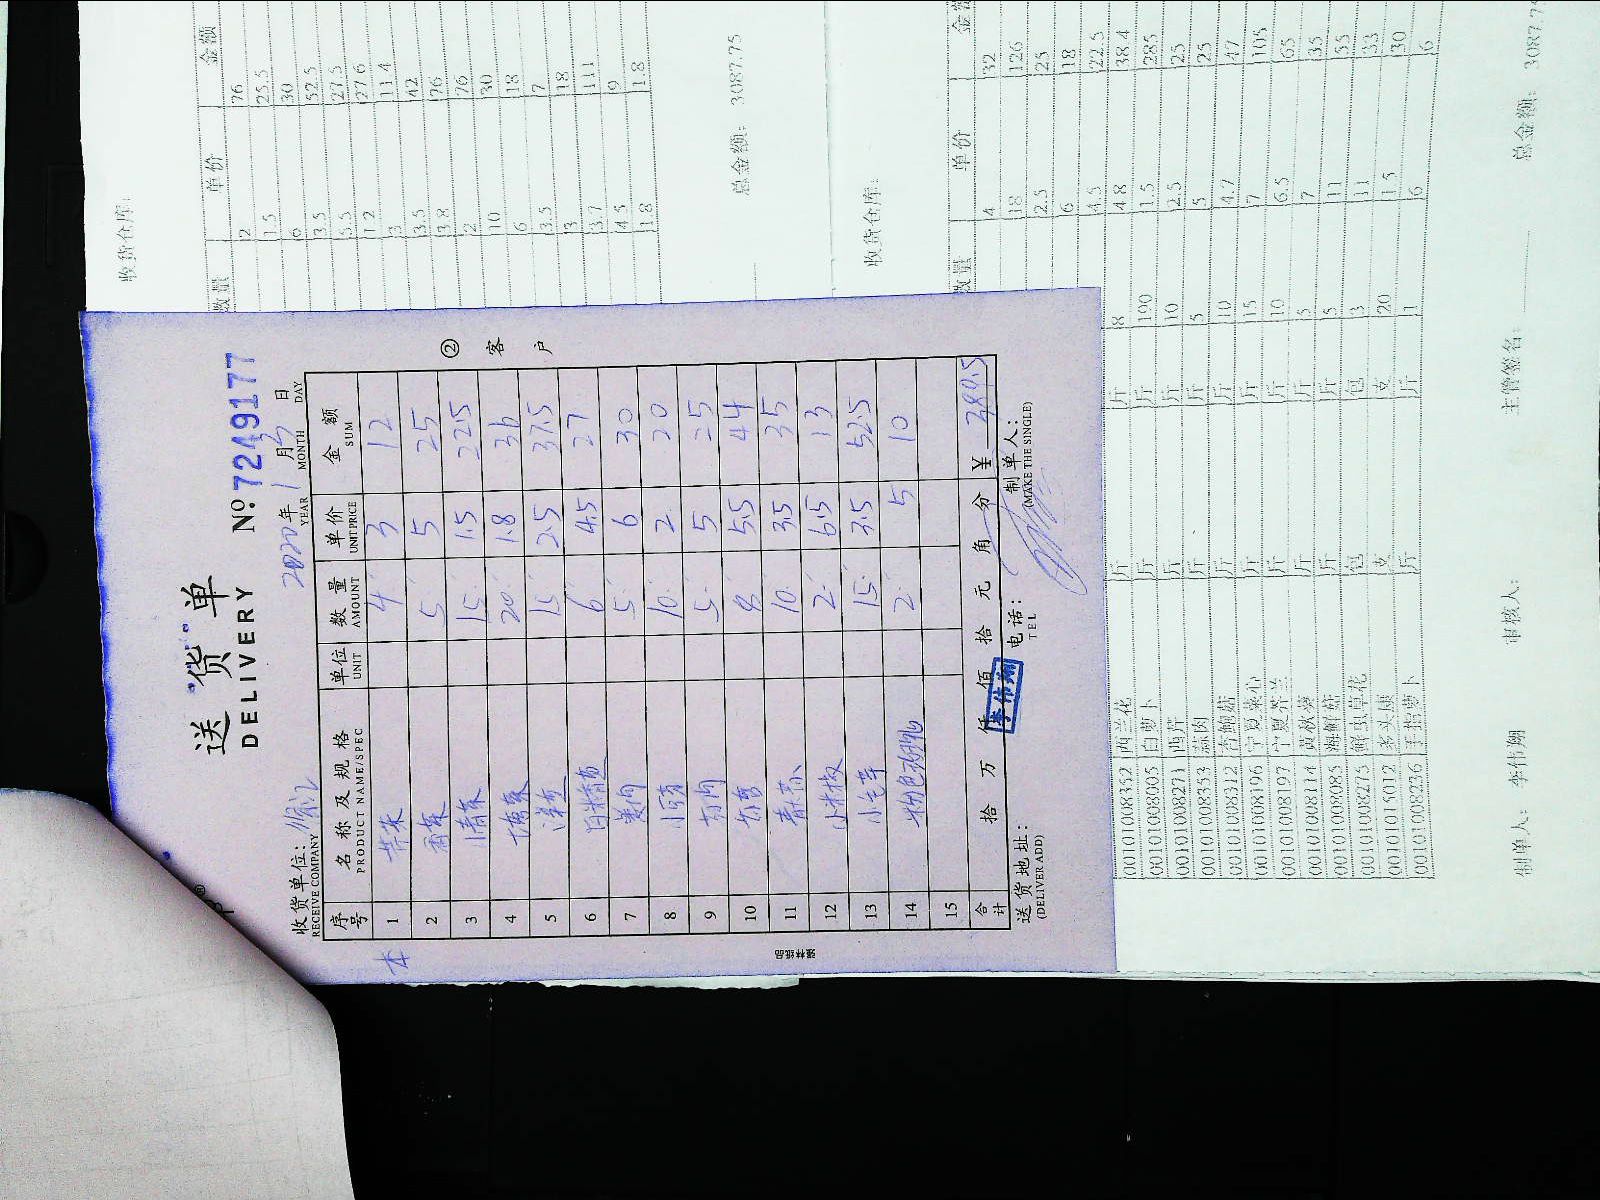 收货仓库：
数量 单价 金额
2 76
1.5 25.5
6 30
3.5 52.5
5.5 27.5
1.2 27.6
3 11.4
3.5 42
3.8 76
2 76
10 30
6 18
3.5 7
3 18
3.7 111
4.5 9
1.8 1.8
总金额： 3087.75
收货仓库：
数量 单价 金额
4 32
18 126
2.5 25
6 18
4.5 22.5
00101008352 西兰花 斤 斤 8 4.8 38.4
00101008005 白萝卜 斤 斤 190 1.5 285
00101008271 西芹 斤 斤 10 2.5 25
00101008353 蒜肉 斤 斤 5 5 25
00101008312 杏鲍菇 斤 斤 10 4.7 47
00101008196 宁夏菜心 斤 斤 15 7 105
00101008197 宁夏芥兰 斤 斤 10 6.5 65
00101008114 黄秋葵 斤 斤 5 7 35
00101008085 海鲜菇 斤 斤 5 11 55
00101008275 鲜虫草花 包 包 3 11 33
00101015012 支 支 20 1.5 30
00101008236 手指萝卜 斤 斤 1 6 6
制单人： 李伟翔 审核人： 主管签名： 总金额： 3087.75
送货单
DELIVERY
№ 7249177
收货单位：
RECEIVE COMPANY
2020年 1月5日
YEAR MONTH DAY
序号 名称及规格 单位 数量 单价 金额
PRODUCT NAME/SPEC UNIT AMOUNT UNIT PRICE SUM
1 4 3 12
2 5 5 25
3 15 1.5 22.5
4 20 1.8 36
5 15 2.5 37.5
6 6 4.5 27
7 5 6 30
8 10 2 20
9 5 5 25
10 8 5.5 44
11 10 3.5 35
12 小米椒 2 6.5 13
13 小毛芋 15 3.5 52.5
14 2 5 10
15
合计 拾 万 仟 佰 拾 元 角 分 ¥ 389.5
李伟翔
送货地址： 电话： 制单人：
(DELIVER ADD) TEL (MAKE THE SINGLE)
② 客户